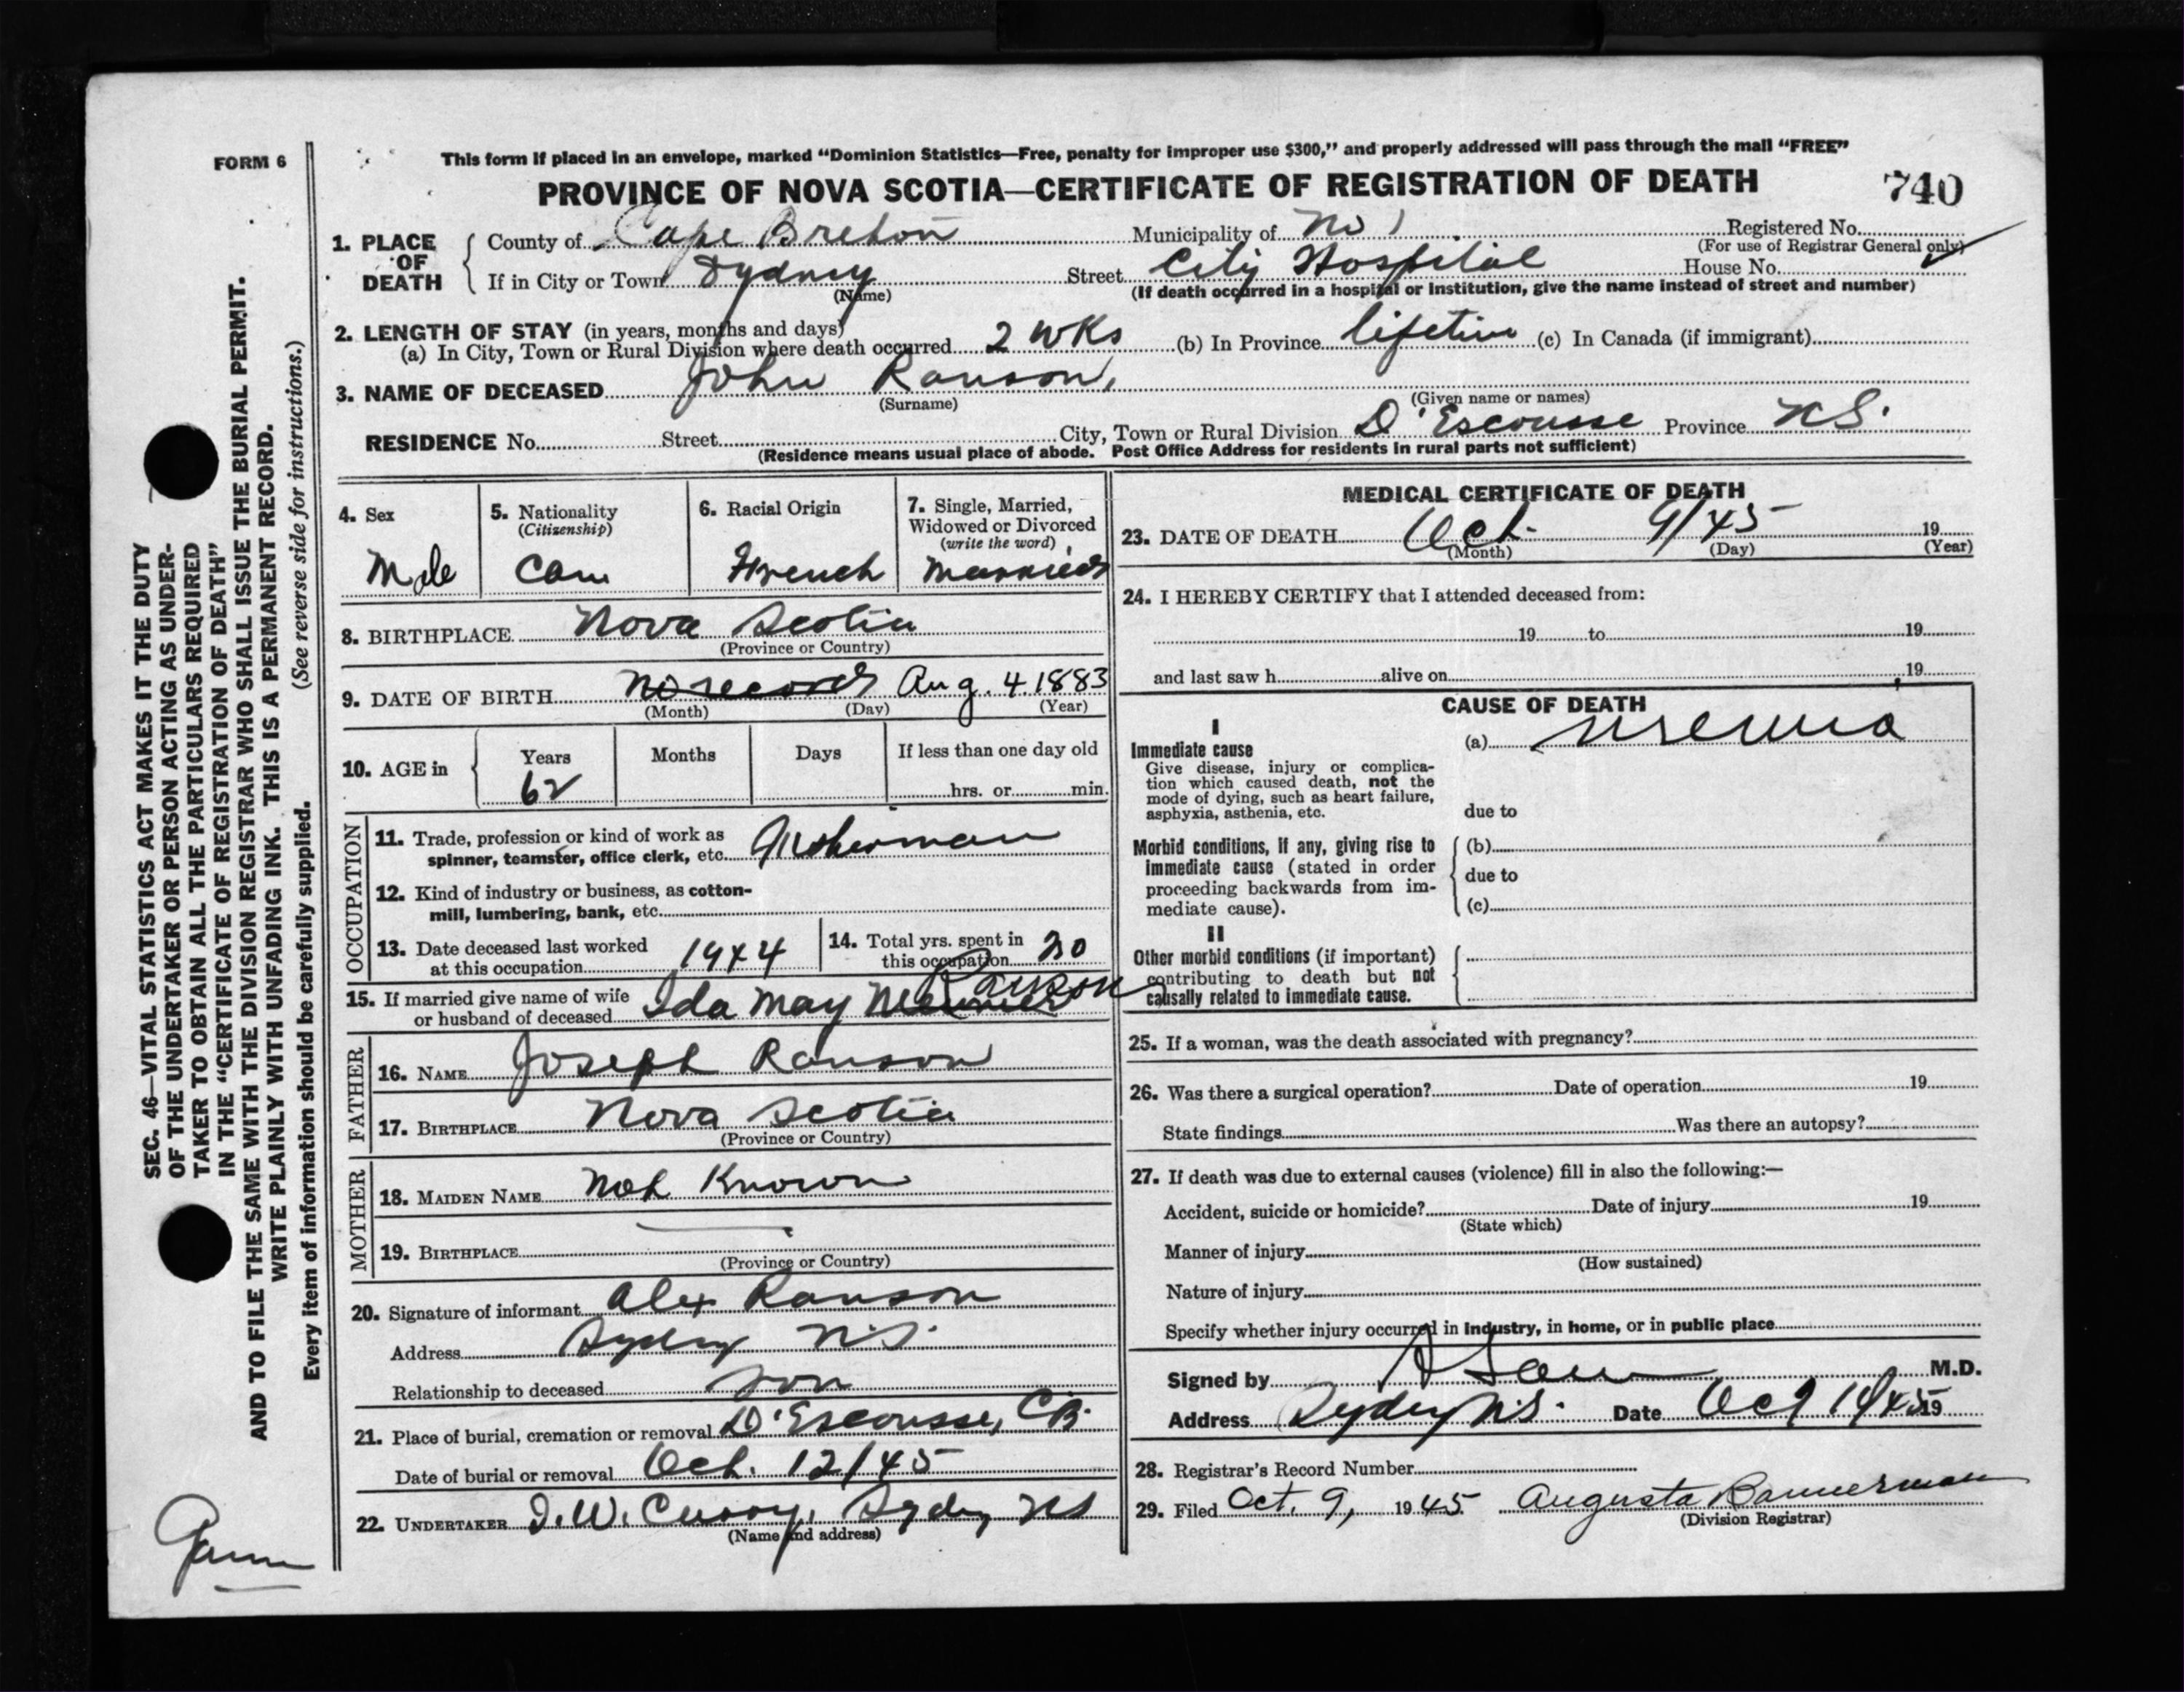 FORM 6
This form if placed in an envelope, marked “Dominion Statistics—Free, penalty for improper use $300,” and properly addressed will pass through the mail “FREE”
PROVINCE OF NOVA SCOTIA—CERTIFICATE OF REGISTRATION OF DEATH
740
1. PLACE OF DEATH
County of Cape Breton Municipality of No 1 Registered No.
(For use of Registrar General only)
If in City or Town Sydney Street City Hospital House No.
(Name) (If death occurred in a hospital or institution, give the name instead of street and number)
2. LENGTH OF STAY (in years, months and days)
(a) In City, Town or Rural Division where death occurred 2 wks (b) In Province lifetime (c) In Canada (if immigrant)
3. NAME OF DECEASED John Ranson,
(Surname) (Given name or names)
RESIDENCE No. Street City, Town or Rural Division D'Escousse Province NS.
(Residence means usual place of abode. Post Office Address for residents in rural parts not sufficient)
4. Sex
Male
5. Nationality
(Citizenship)
Can
6. Racial Origin
French
7. Single, Married,
Widowed or Divorced
(write the word)
Married
8. BIRTHPLACE Nova Scotia
(Province or Country)
9. DATE OF BIRTH no record Aug. 4 1883
(Month) (Day) (Year)
10. AGE in
Years Months Days If less than one day old
62 hrs. or min.
OCCUPATION
11. Trade, profession or kind of work as
spinner, teamster, office clerk, etc. Fisherman
12. Kind of industry or business, as cotton-
mill, lumbering, bank, etc.
13. Date deceased last worked
at this occupation 1944
14. Total yrs. spent in
this occupation 20
15. If married give name of wife
or husband of deceased Ida May Ranson
FATHER
16. NAME Joseph Ranson
17. BIRTHPLACE Nova Scotia
(Province or Country)
MOTHER
18. MAIDEN NAME Not Known
19. BIRTHPLACE
(Province or Country)
20. Signature of informant Alex Ranson
Address Sydney N.S.
Relationship to deceased Son
21. Place of burial, cremation or removal D'Escousse, CB.
Date of burial or removal Oct. 12/45
22. UNDERTAKER Sydney NS
(Name and address)
MEDICAL CERTIFICATE OF DEATH
23. DATE OF DEATH Oct. 9/45 19
(Month) (Day) (Year)
24. I HEREBY CERTIFY that I attended deceased from:
19 to 19
and last saw h alive on 19
CAUSE OF DEATH
I
Immediate cause
Give disease, injury or complica-
tion which caused death, not the
mode of dying, such as heart failure,
asphyxia, asthenia, etc.
(a) uremia
due to
Morbid conditions, if any, giving rise to
immediate cause (stated in order
proceeding backwards from im-
mediate cause).
(b)
due to
(c)
II
Other morbid conditions (if important)
contributing to death but not
causally related to immediate cause.
25. If a woman, was the death associated with pregnancy?
26. Was there a surgical operation? Date of operation 19
State findings Was there an autopsy?
27. If death was due to external causes (violence) fill in also the following:—
Accident, suicide or homicide? Date of injury 19
(State which)
Manner of injury
(How sustained)
Nature of injury
Specify whether injury occurred in industry, in home, or in public place
Signed by M.D.
Address Sydney N.S. Date 19
28. Registrar's Record Number
29. Filed Oct. 9, 1945 Augusta Bannerman
(Division Registrar)
SEC. 46—VITAL STATISTICS ACT MAKES IT THE DUTY
OF THE UNDERTAKER OR PERSON ACTING AS UNDER-
TAKER TO OBTAIN ALL THE PARTICULARS REQUIRED
IN THE “CERTIFICATE OF REGISTRATION OF DEATH”
AND TO FILE THE SAME WITH THE DIVISION REGISTRAR WHO SHALL ISSUE THE BURIAL PERMIT.
WRITE PLAINLY WITH UNFADING INK. THIS IS A PERMANENT RECORD.
Every item of information should be carefully supplied. (See reverse side for instructions.)